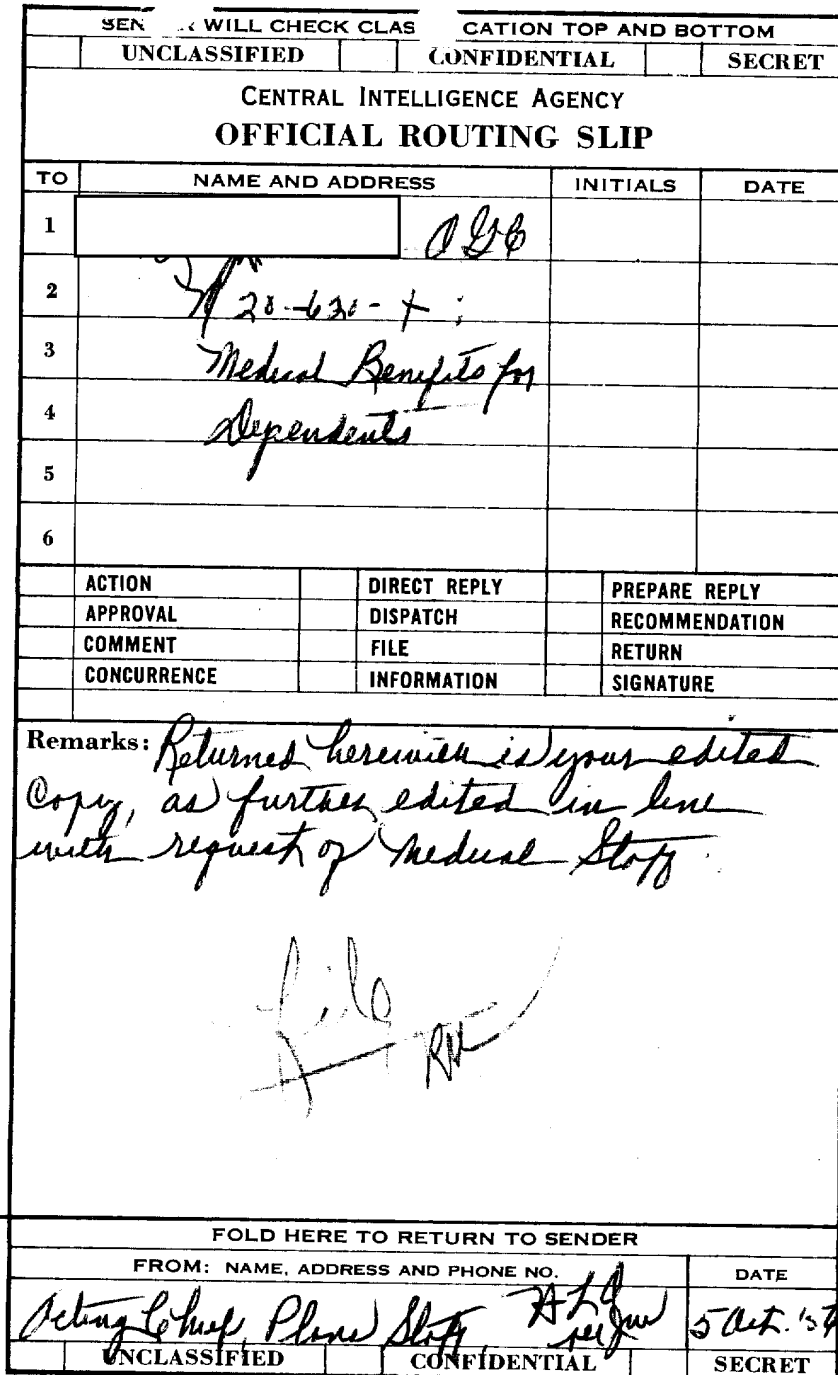 WILL CHECK CLAS CATION TOP AND BOTTOM
UNCLASSIFIED CONFIDENTIAL SECRET
CENTRAL INTELLIGENCE AGENCY
OFFICIAL ROUTING SLIP
TO NAME AND ADDRESS INITIALS DATE
1 OGC
2 20-630-
3 Medical Benefits for
4 Dependents
5
6
ACTION DIRECT REPLY PREPARE REPLY
APPROVAL DISPATCH RECOMMENDATION
COMMENT FILE RETURN
CONCURRENCE INFORMATION SIGNATURE
Remarks: Returned herewith is your edited
Copy, as further edited in line
with request of Medical Staff.
file
FOLD HERE TO RETURN TO SENDER
FROM: NAME, ADDRESS AND PHONE NO. DATE
Acting Chief, Plans Staff 5 Oct.
UNCLASSIFIED CONFIDENTIAL SECRET